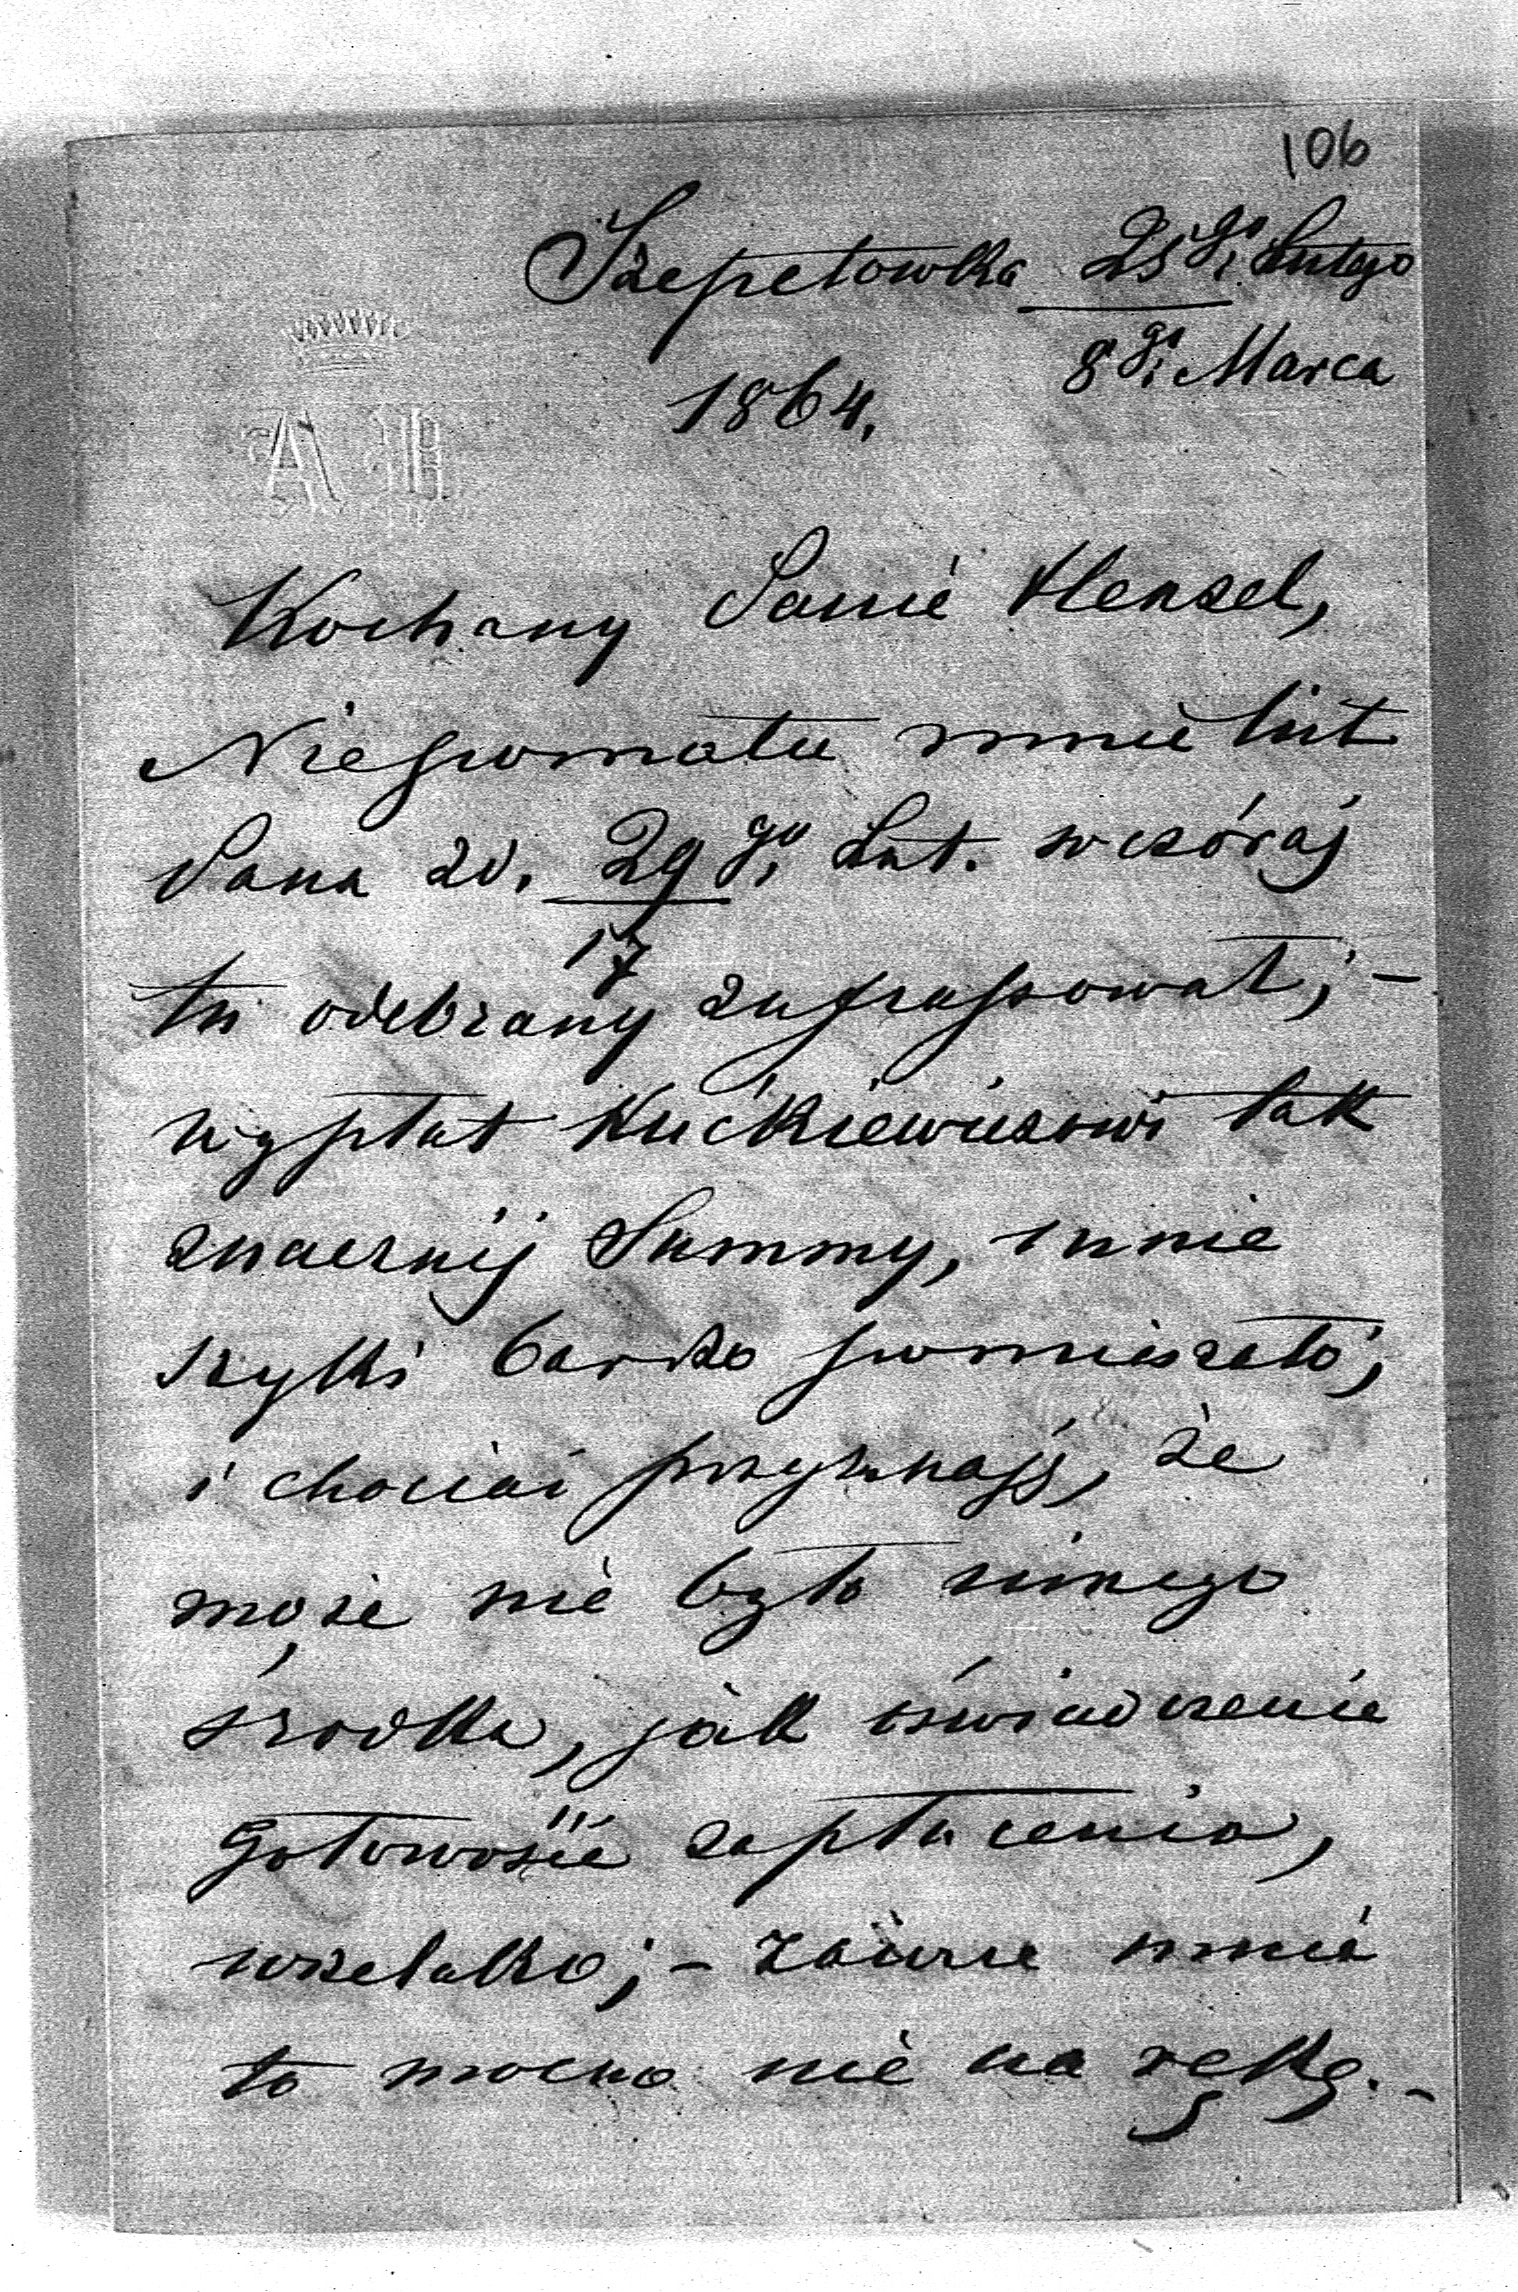 106
Szepetowka 25go Lutego
8go Marca
1864.
A B
Kochany Panie Hensel,
Niepomału mnie list
Pana zd. 29go Lut. wczóraj
17
tu odebrany zafrassował; –
wypłat Kućkiewiczowi tak
znacznéj Summy, mnie
szyki bardzo pomieszało,
i chociaż przyznaję, że
może nie było innego
środka, jak oświadczenie
gotowości zapłacenia,
wszelako; – zawsze mnie
to mocno nie na rękę. –